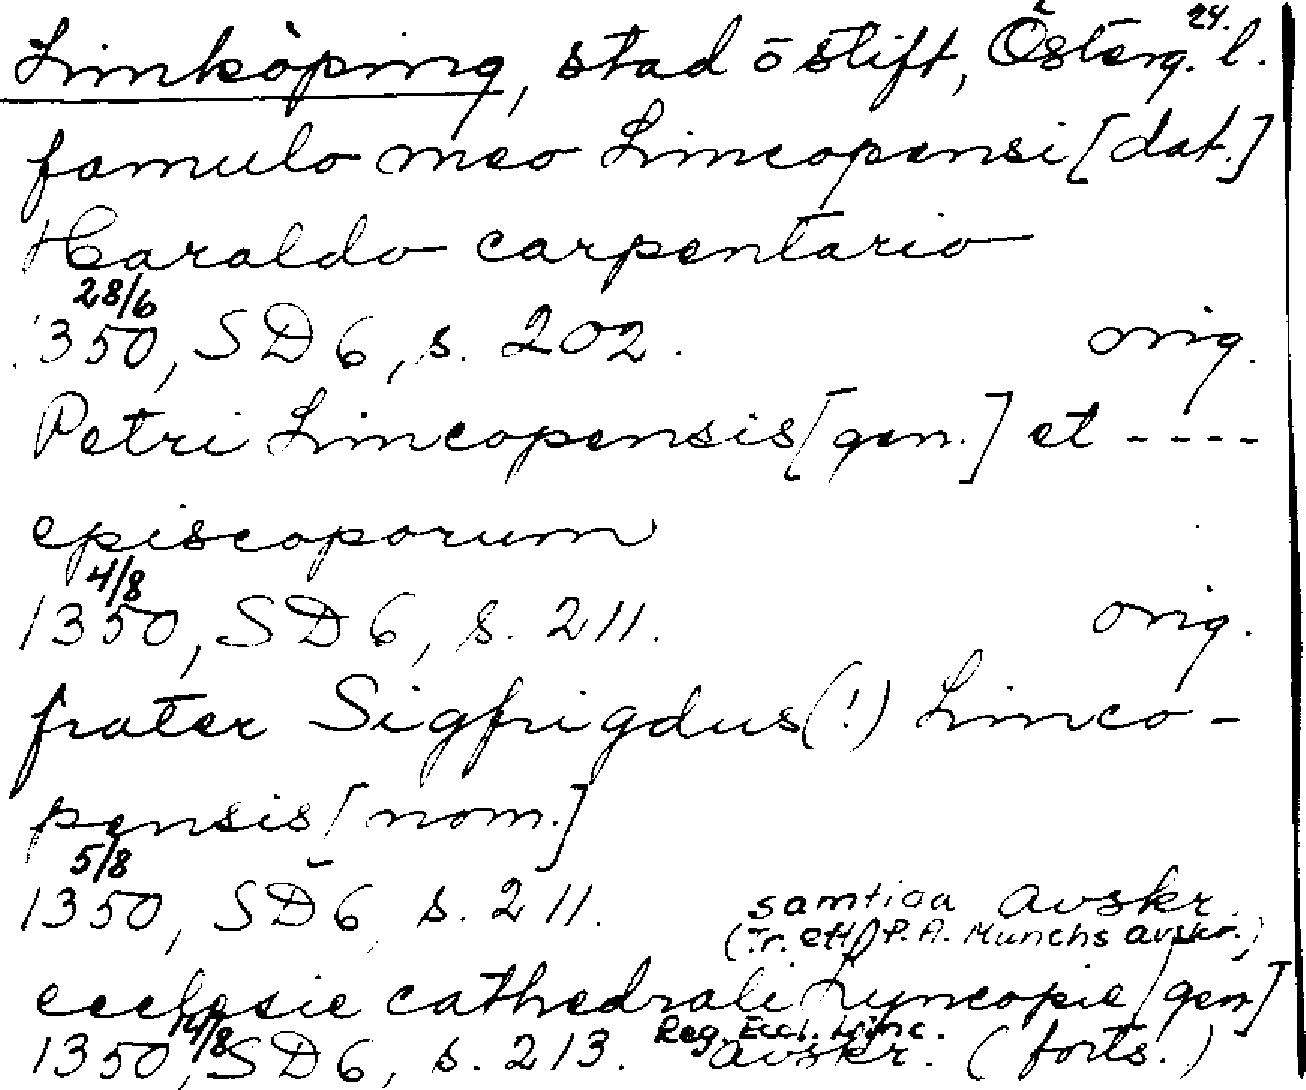 24.
Linköping, stad o stift, Österg. l.
famulo meo Lincopensi [dat.]
Haraldo carpentario
28/6
1350, SD 6, s. 202. orig.
Petri Lincopensis [gen.] et ----
episcoporum
4/8
1350, SD 6, s. 211. orig.
frater Sigfrigdus (!) Linco-
pensis [nom.]
5/8
1350, SD 6, s. 211. samtida avskr.
(Tr. eft. P. A. Munchs avskr.)
ecclesie cathedrali Lyncopie [gen.]
14/8 Reg. Eccl. Linc.
1350, SD 6, s. 213. avskr. (forts.)